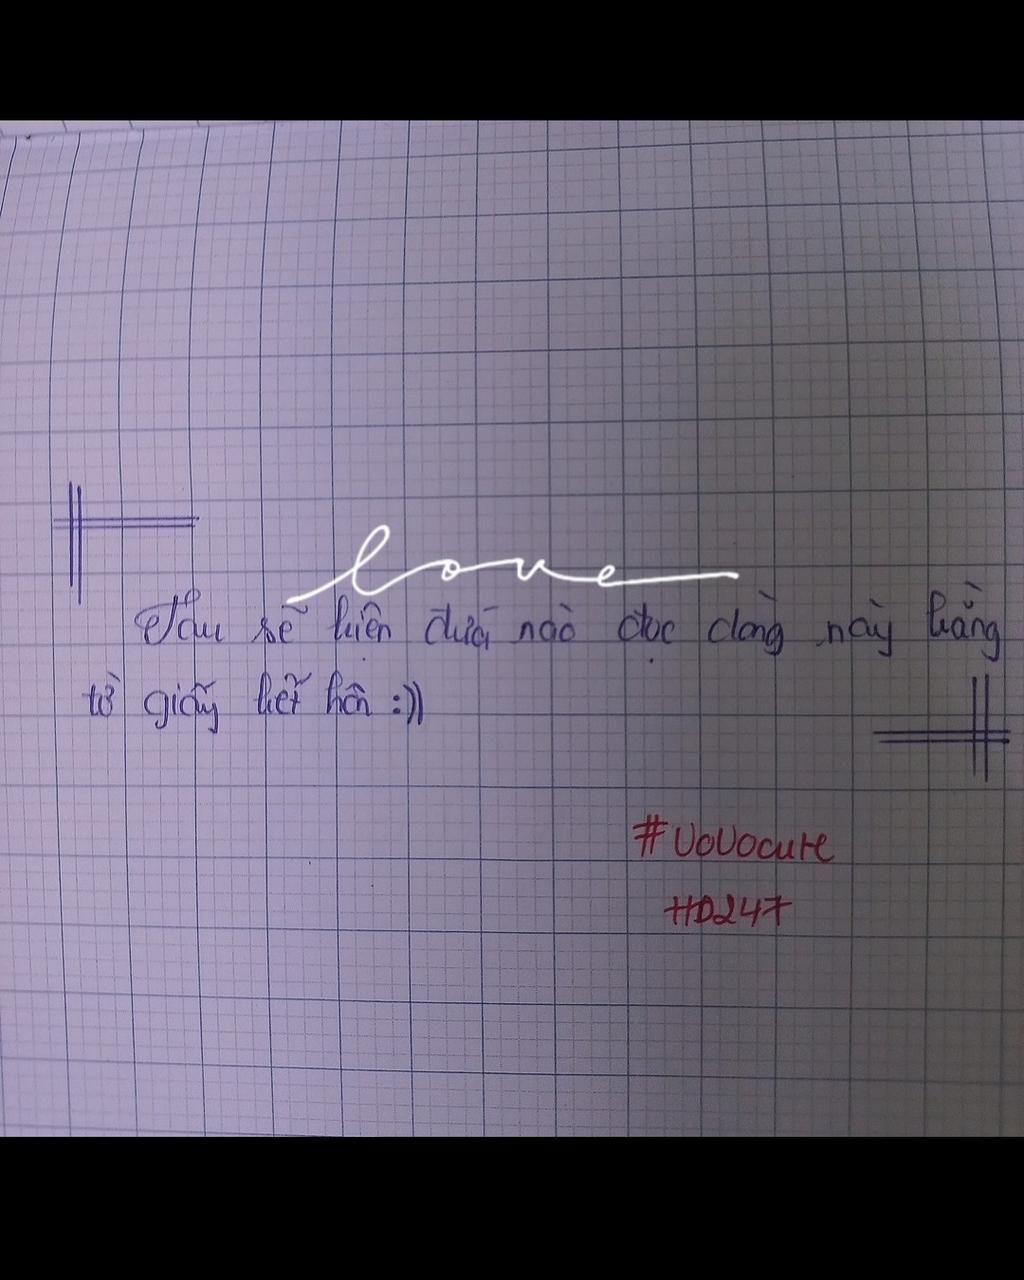 love
Tau sẽ kiện đứa nào đọc dòng này bằng
tờ giấy hết hồn :))
#UoUocute
HD247